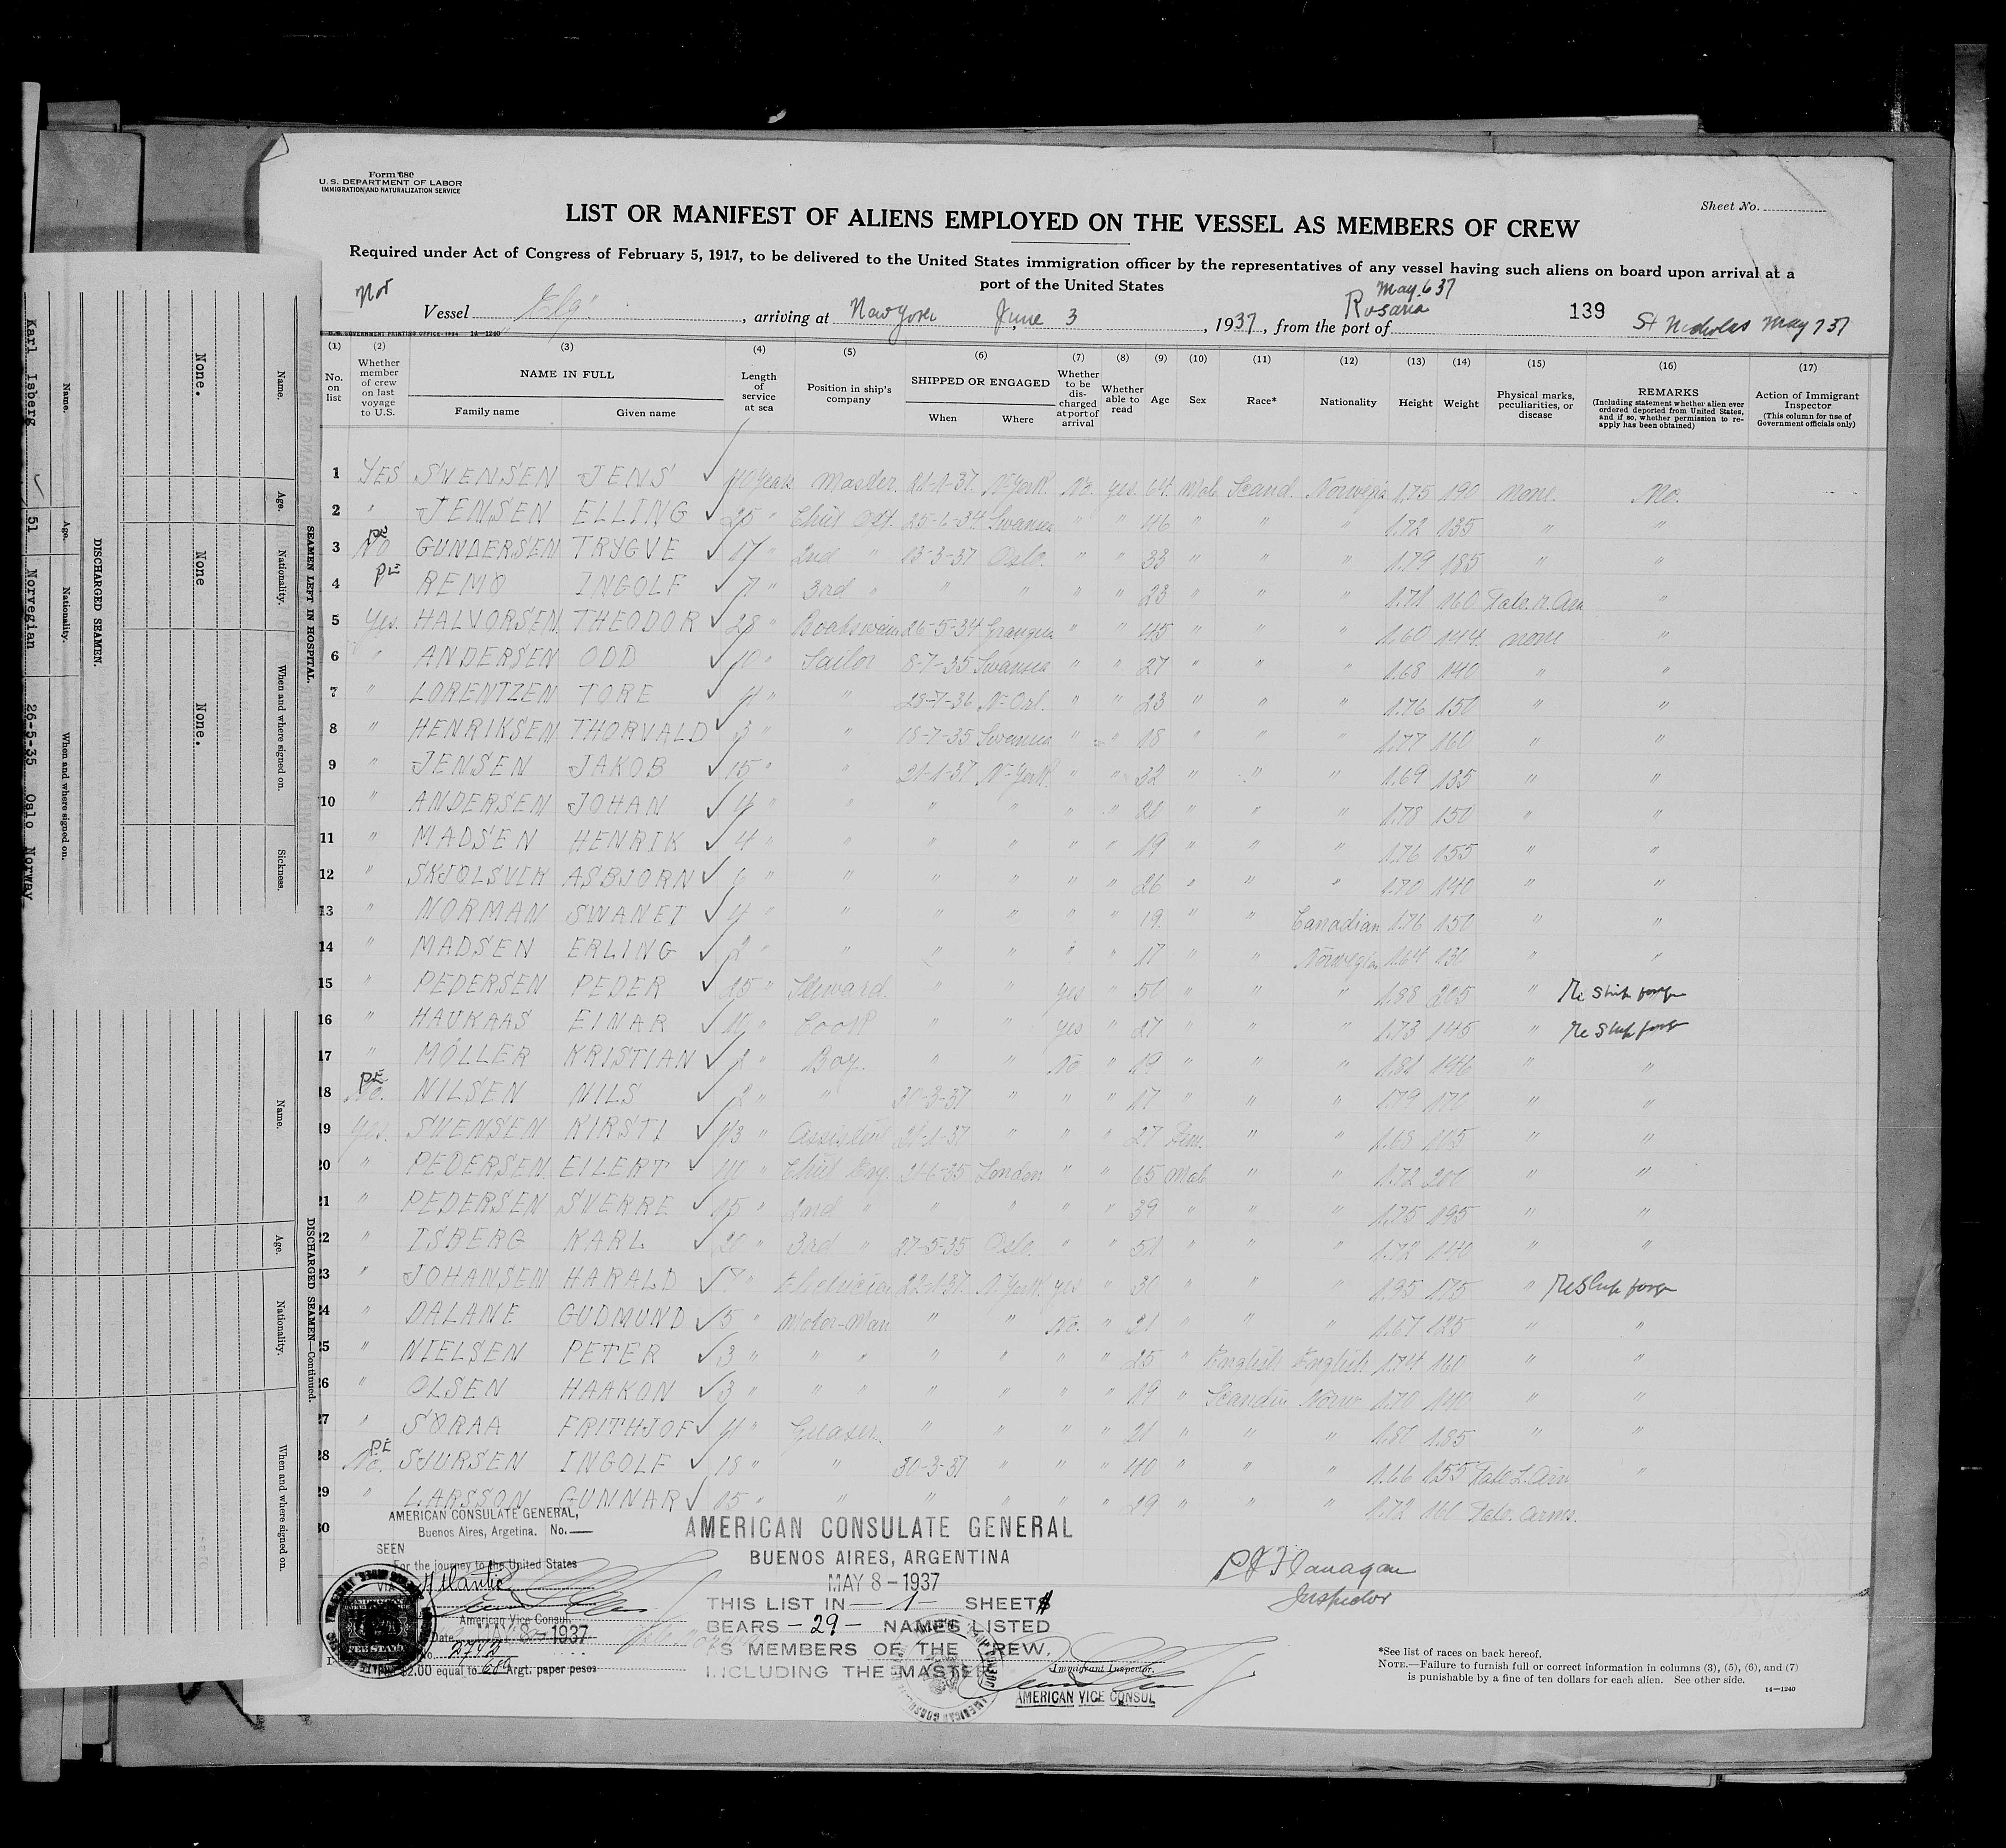 Form 680
U.S. DEPARTMENT OF LABOR
IMMIGRATION AND NATURALIZATION SERVICE
Sheet No.
LIST OR MANIFEST OF ALIENS EMPLOYED ON THE VESSEL AS MEMBERS OF CREW
Required under Act of Congress of February 5, 1917, to be delivered to the United States immigration officer by the representatives of any vessel having such aliens on board upon arrival at a
port of the United States
Nor
May. 6 37
Vessel Elg, arriving at June 3, 1937, from the port of Rosario 139 St Nicholas May 7 37
U.S. GOVERNMENT PRINTING OFFICE: 1934 14—1240
(1) (2) (3) (4) (5) (6) (7) (8) (9) (10) (11) (12) (13) (14) (15) (16) (17)
No. on list
Whether member of crew on last voyage to U.S.
NAME IN FULL
Family name
Given name
Length of service at sea
Position in ship's company
SHIPPED OR ENGAGED
When
Where
Whether to be discharged at port of arrival
Whether able to read
Age
Sex
Race*
Nationality
Height
Weight
Physical marks, peculiarities, or disease
REMARKS
(Including statement whether alien ever ordered deported from United States, and if so, whether permission to re-apply has been obtained)
Action of Immigrant Inspector
(This column for use of Government officials only)
1 YES SVENSEN JENS ✓ 40 Years Master 21-1-37 N-York No. yes. 64 Male Scand. Norwegia 1.75 190 none. No.
2 " JENSEN ELLING ✓ 25 " Chief Off. 25-6-34 Swansea " " 46 " " " 1.72 135 " "
3 PE No GUNDERSEN TRYGVE ✓ 17 " 2nd " 13-3-37 Oslo. " " 33 " " " 1.79 185 " "
4 PE REMO INGOLF ✓ 7 " 3rd " " " " " 23 " " " 1.71 160 Tato. R. Arm "
5 Yes. HALVORSEN THEODOR ✓ 28 " Boatswain 26-5-34 " " 45 " " " 1.60 144 none "
6 " ANDERSEN ODD ✓ 10 " Sailor 8-7-35 Swansea " " 27 " " " 1.68 140 " "
7 " LORENTZEN TORE ✓ 4 " " 28-7-36 N-Orl. " " 23 " " " 1.76 150 " "
8 " HENRIKSEN THORVALD ✓ 3 " " 18-7-35 Swansea " " 18 " " " 1.77 160 " "
9 " JENSEN JAKOB ✓ 15 " " 21-1-37 N-York " " 32 " " " 1.69 135 " "
10 " ANDERSEN JOHAN ✓ 4 " " " " " " 20 " " " 1.78 150 " "
11 " MADSEN HENRIK ✓ 4 " " " " " " 19 " " " 1.76 155 " "
12 " SKJOLSVIK ASBJORN ✓ 6 " " " " " " 26 " " " 1.70 140 " "
13 " NORMAN SWANET ✓ 4 " " " " " " 19 " " Canadian 1.76 150 " "
14 " MADSEN ERLING ✓ 2 " " " " " " 17 " " Norwegian 1.64 130 " "
15 " PEDERSEN PEDER ✓ 25 " Steward. " " yes " 50 " " " 1.88 205 " Re Ship forgn
16 " HAUKAAS EINAR ✓ 10 " Cook " " yes " 27 " " " 1.73 145 " Re Ship forgn
17 " MÖLLER KRISTIAN ✓ 2 " Boy. " " No " 19 " " " 1.81 146 " "
18 PE No. NILSEN NILS ✓ 2 " " 30-3-37 " " " 17 " " " 1.79 170 " "
19 Yes. SVENSEN KIRSTI ✓ " Assistent 21-1-37 " " " 27 Fem. " " 1.68 " "
20 " PEDERSEN EILERT ✓ 40 " Chief Eng. 21-6-35 London " " 65 Male " " 1.72 200 " "
21 " PEDERSEN SVERRE ✓ 15 " 2nd " " " " " 39 " " " 1.75 195 " "
22 " ISBERG KARL ✓ 20 " 3rd " 27-5-35 Oslo. " " 51 " " " 1.72 140 " "
23 " JOHANSEN HARALD ✓ " Electrician 22-1-37 N-York yes " 31 " " " 1.95 175 " Re Ship forgn
24 " DALANE GUDMUND ✓ 5 " Motor-Man " " No. " 21 " " " 1.67 125 " "
25 " NIELSEN PETER ✓ 3 " " " " " " " 25 " English English 1.74 160 " "
26 " OLSEN HAAKON ✓ 3 " " " " " " " 19 " Scandin Norw 1.70 140 " "
27 " SØRAA FRITHJOF ✓ 4 " Greaser. " " " " 21 " " " 1.81 185 " "
28 PE No. SJURSEN INGOLF ✓ 18 " " 30-3-37 " " " 40 " " " 1.66 155 Tato L. Arm "
29 " LARSSON GUNNAR ✓ 15 " " " " " " 29 " " " 1.72 160 Tato. Arms.
30
AMERICAN CONSULATE GENERAL,
Buenos Aires, Argetina. No.—
SEEN
For the journey to the United States
VIA Atlantic
American Vice Consul.
Date MAY 8 - 1937
No. 2742
$2.00 equal to Argt. paper pesos
AMERICAN CONSULATE GENERAL
BUENOS AIRES, ARGENTINA
MAY 8 - 1937
THIS LIST IN — 1 — SHEETS
BEARS — 29 — NAMES LISTED
AS MEMBERS OF THE CREW.
INCLUDING THE MASTER
Immigrant Inspector.
AMERICAN VICE CONSUL
P J Flanagan
Inspector
*See list of races on back hereof.
NOTE.—Failure to furnish full or correct information in columns (3), (5), (6), and (7)
is punishable by a fine of ten dollars for each alien. See other side.
14—1240
SEAMEN LEFT IN HOSPITAL.
Name. Age. Nationality. When and where signed on. Sickness.
None. None None.
DISCHARGED SEAMEN.
Name. Age. Nationality. When and where signed on.
Karl Isberg ✓ 51 Norvegian 26-5-35 Oslo Norway
DISCHARGED SEAMEN—Continued.
Name. Age. Nationality. When and where signed on.